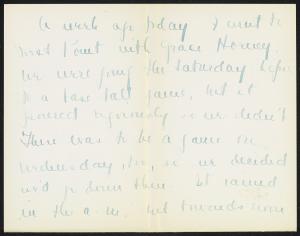 A week ago today I went to
West Point with Grace Horney.
We were going the Saturday before
to a base ball game, but it
poured vigorously so we didn't
There was to be a game on
Wednesday, too, so we decided
we'd go down then. It rained
in the a.m. but towards noon